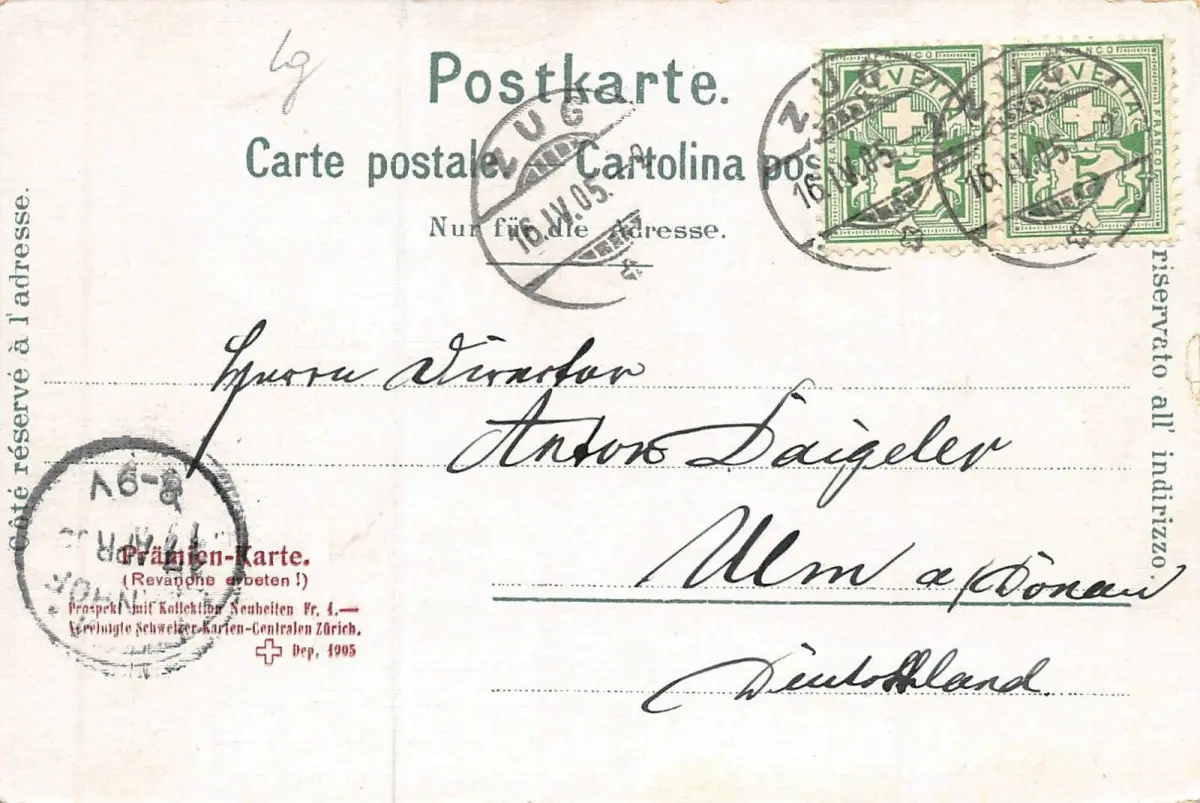 lg
Postkarte.
Carte postale. Cartolina pos
Nur für die Adresse.
FRANCO
HELVETIA
FRANCO
5
FRANCO
HELVETIA
FRANCO
5
ZUG
16.IV.05.–2
ZUG
16.IV.05.–2
ZUG
16.IV.05.–2
Côté réservé à l'adresse.
riservato all' indirizzo.
Herrn Director
Anton Daigeler
Ulm a/Donau
Deutschland.
8-9V
17 APR
Prämien-Karte.
(Revanche erbeten!)
Prospekt mit Kollektion Neuheiten Fr. 1.—
Vereinigte Schweizer-Karten-Centralen Zürich.
Dep. 1905